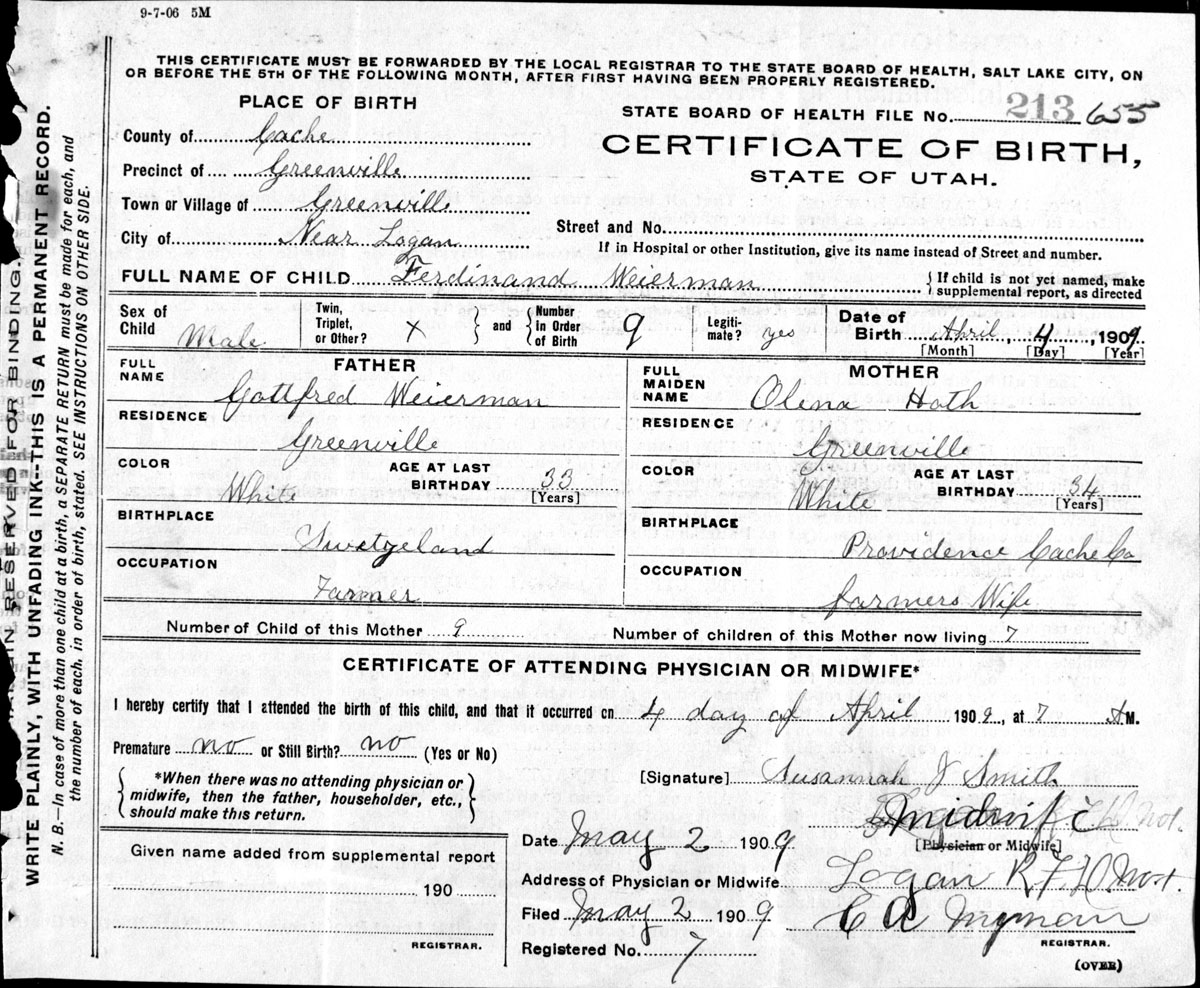 9-7-06 5M
THIS CERTIFICATE MUST BE FORWARDED BY THE LOCAL REGISTRAR TO THE STATE BOARD OF HEALTH, SALT LAKE CITY, ON
OR BEFORE THE 5TH OF THE FOLLOWING MONTH, AFTER FIRST HAVING BEEN PROPERLY REGISTERED.
PLACE OF BIRTH
County of Cache
Precinct of Greenville
Town or Village of Greenville
City of Near Logan
STATE BOARD OF HEALTH FILE No. 213 655
CERTIFICATE OF BIRTH,
STATE OF UTAH.
Street and No.
If in Hospital or other Institution, give its name instead of Street and number.
FULL NAME OF CHILD Ferdinand Weierman
{If child is not yet named, make
supplemental report, as directed
Sex of
Child Male
Twin,
Triplet,
or Other? X } and {
Number
in Order
of Birth 9
Legiti-
mate? yes
Date of
Birth April 4, 1909.
[Month] [Day] [Year]
FATHER
FULL
NAME Gottfred Weierman
RESIDENCE
Greenville
COLOR White
AGE AT LAST
BIRTHDAY 33
[Years]
BIRTHPLACE
Swetzeland
OCCUPATION
Farmer
MOTHER
FULL
MAIDEN
NAME Olena Hoth
RESIDENCE
Greenville
COLOR White
AGE AT LAST
BIRTHDAY 34
[Years]
BIRTHPLACE
Providence Cache Co
OCCUPATION
farmers Wife
Number of Child of this Mother 9 Number of children of this Mother now living 7
CERTIFICATE OF ATTENDING PHYSICIAN OR MIDWIFE*
I hereby certify that I attended the birth of this child, and that it occurred on 4 day of April 1909, at 7 AM.
Premature no or Still Birth? no (Yes or No)
{*When there was no attending physician or
midwife, then the father, householder, etc.,
should make this return.}
[Signature] Susannah J Smith
Midwife
[Physician or Midwife]
Given name added from supplemental report
190
REGISTRAR.
Date May 2 1909
Address of Physician or Midwife Logan R.F.D
Filed May 2 1909
REGISTRAR.
Registered No. 7
(OVER)
MARGIN RESERVED FOR BINDING.
WRITE PLAINLY, WITH UNFADING INK--THIS IS A PERMANENT RECORD.
N. B.—In case of more than one child at a birth, a SEPARATE RETURN must be made for each, and
the number of each, in order of birth, stated. SEE INSTRUCTIONS ON OTHER SIDE.